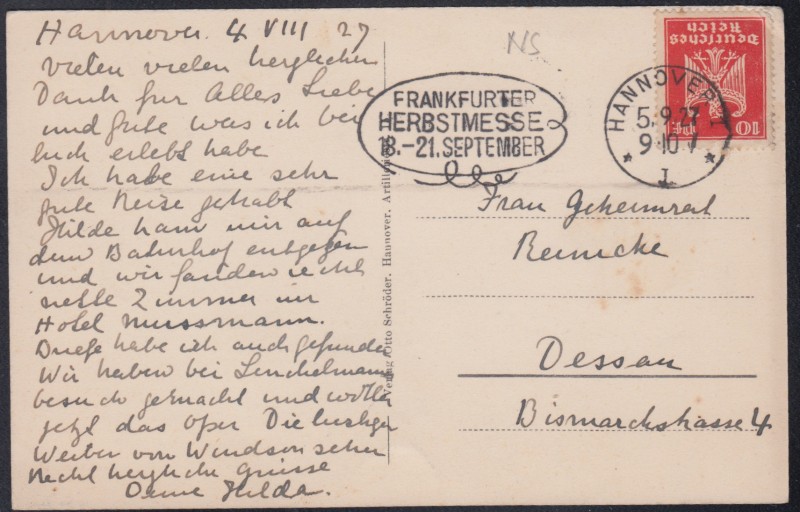 Hannover. 4 VIII 27
vielen vielen herzlichen
Dank für Alles Liebe
und gute was ich bei
Euch erlebt habe
Ich habe eine sehr
gute Reise gehabt
Hilde kam mir auf
dem Bahnhof entgegen
und wir fanden recht
nette Zimmer im
Hotel Mussmann.
Briefe habe ich auch gefunden
Wir haben bei
besuch gemacht und wollen
jetzt das Oper Die lustigen
Weiber von Windsor sehen
Recht herzliche Grüsse
Deine Hilda.
NS
FRANKFURTER
HERBSTMESSE
18.–21. SEPTEMBER
HANNOVER 1
5.9.27
9-10 V
* I *
Deutsches
Reich
10 Pf
Verlag Otto Schröder, Hannover, Artillerie
Frau Geheimrat
Reinicke
Dessau
Bismarckstrasse 4